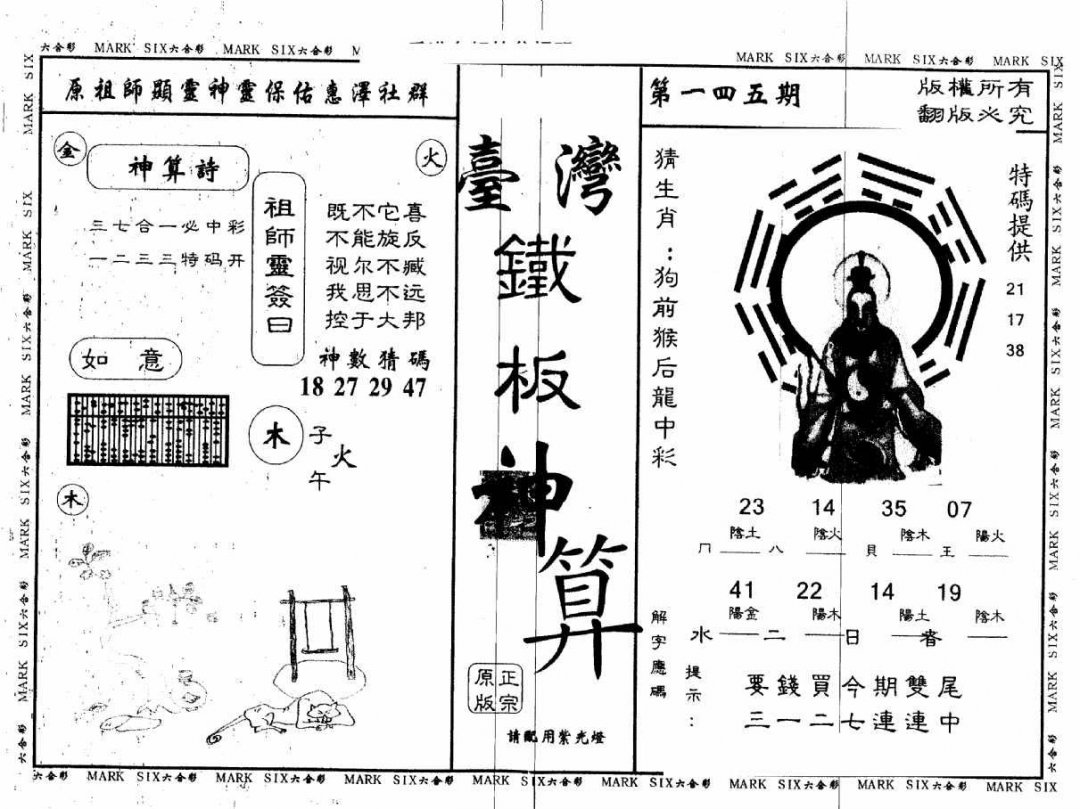 六合彩 MARK SIX六合彩 MARK SIX六合彩 M
MARK SIX六合彩 MARK SIX六合彩 MARK SIX
原祖師顯靈神靈保佑惠澤社群
金
神算詩
三七合一必中彩
一二三三特码开
火
祖師靈簽曰
既不它喜
不能旋反
视尔不臧
我思不远
控于大邦
神數猜碼
18 27 29 47
如意
木
子
火
午
木
臺灣
鐵
板
神
算
正宗
原版
請配用紫光燈
第一四五期
版權所有
翻版必究
猜生肖：狗前猴后龍中彩
特碼提供
21
17
38
23 14 35 07
陰土 陰火 陰木 陽火
冂 八 貝 王
41 22 14 19
陽金 陽木 陽土 陰木
水 二 日
解字應碼
提示：
要錢買今期雙尾
三一二七連連中
六合彩 MARK SIX六合彩 MARK SIX六合彩 MARK SIX六合彩 MARK SIX六合彩 MARK SIX六合彩 MARK SIX六合彩 MARK SIX六合彩 MARK SIX